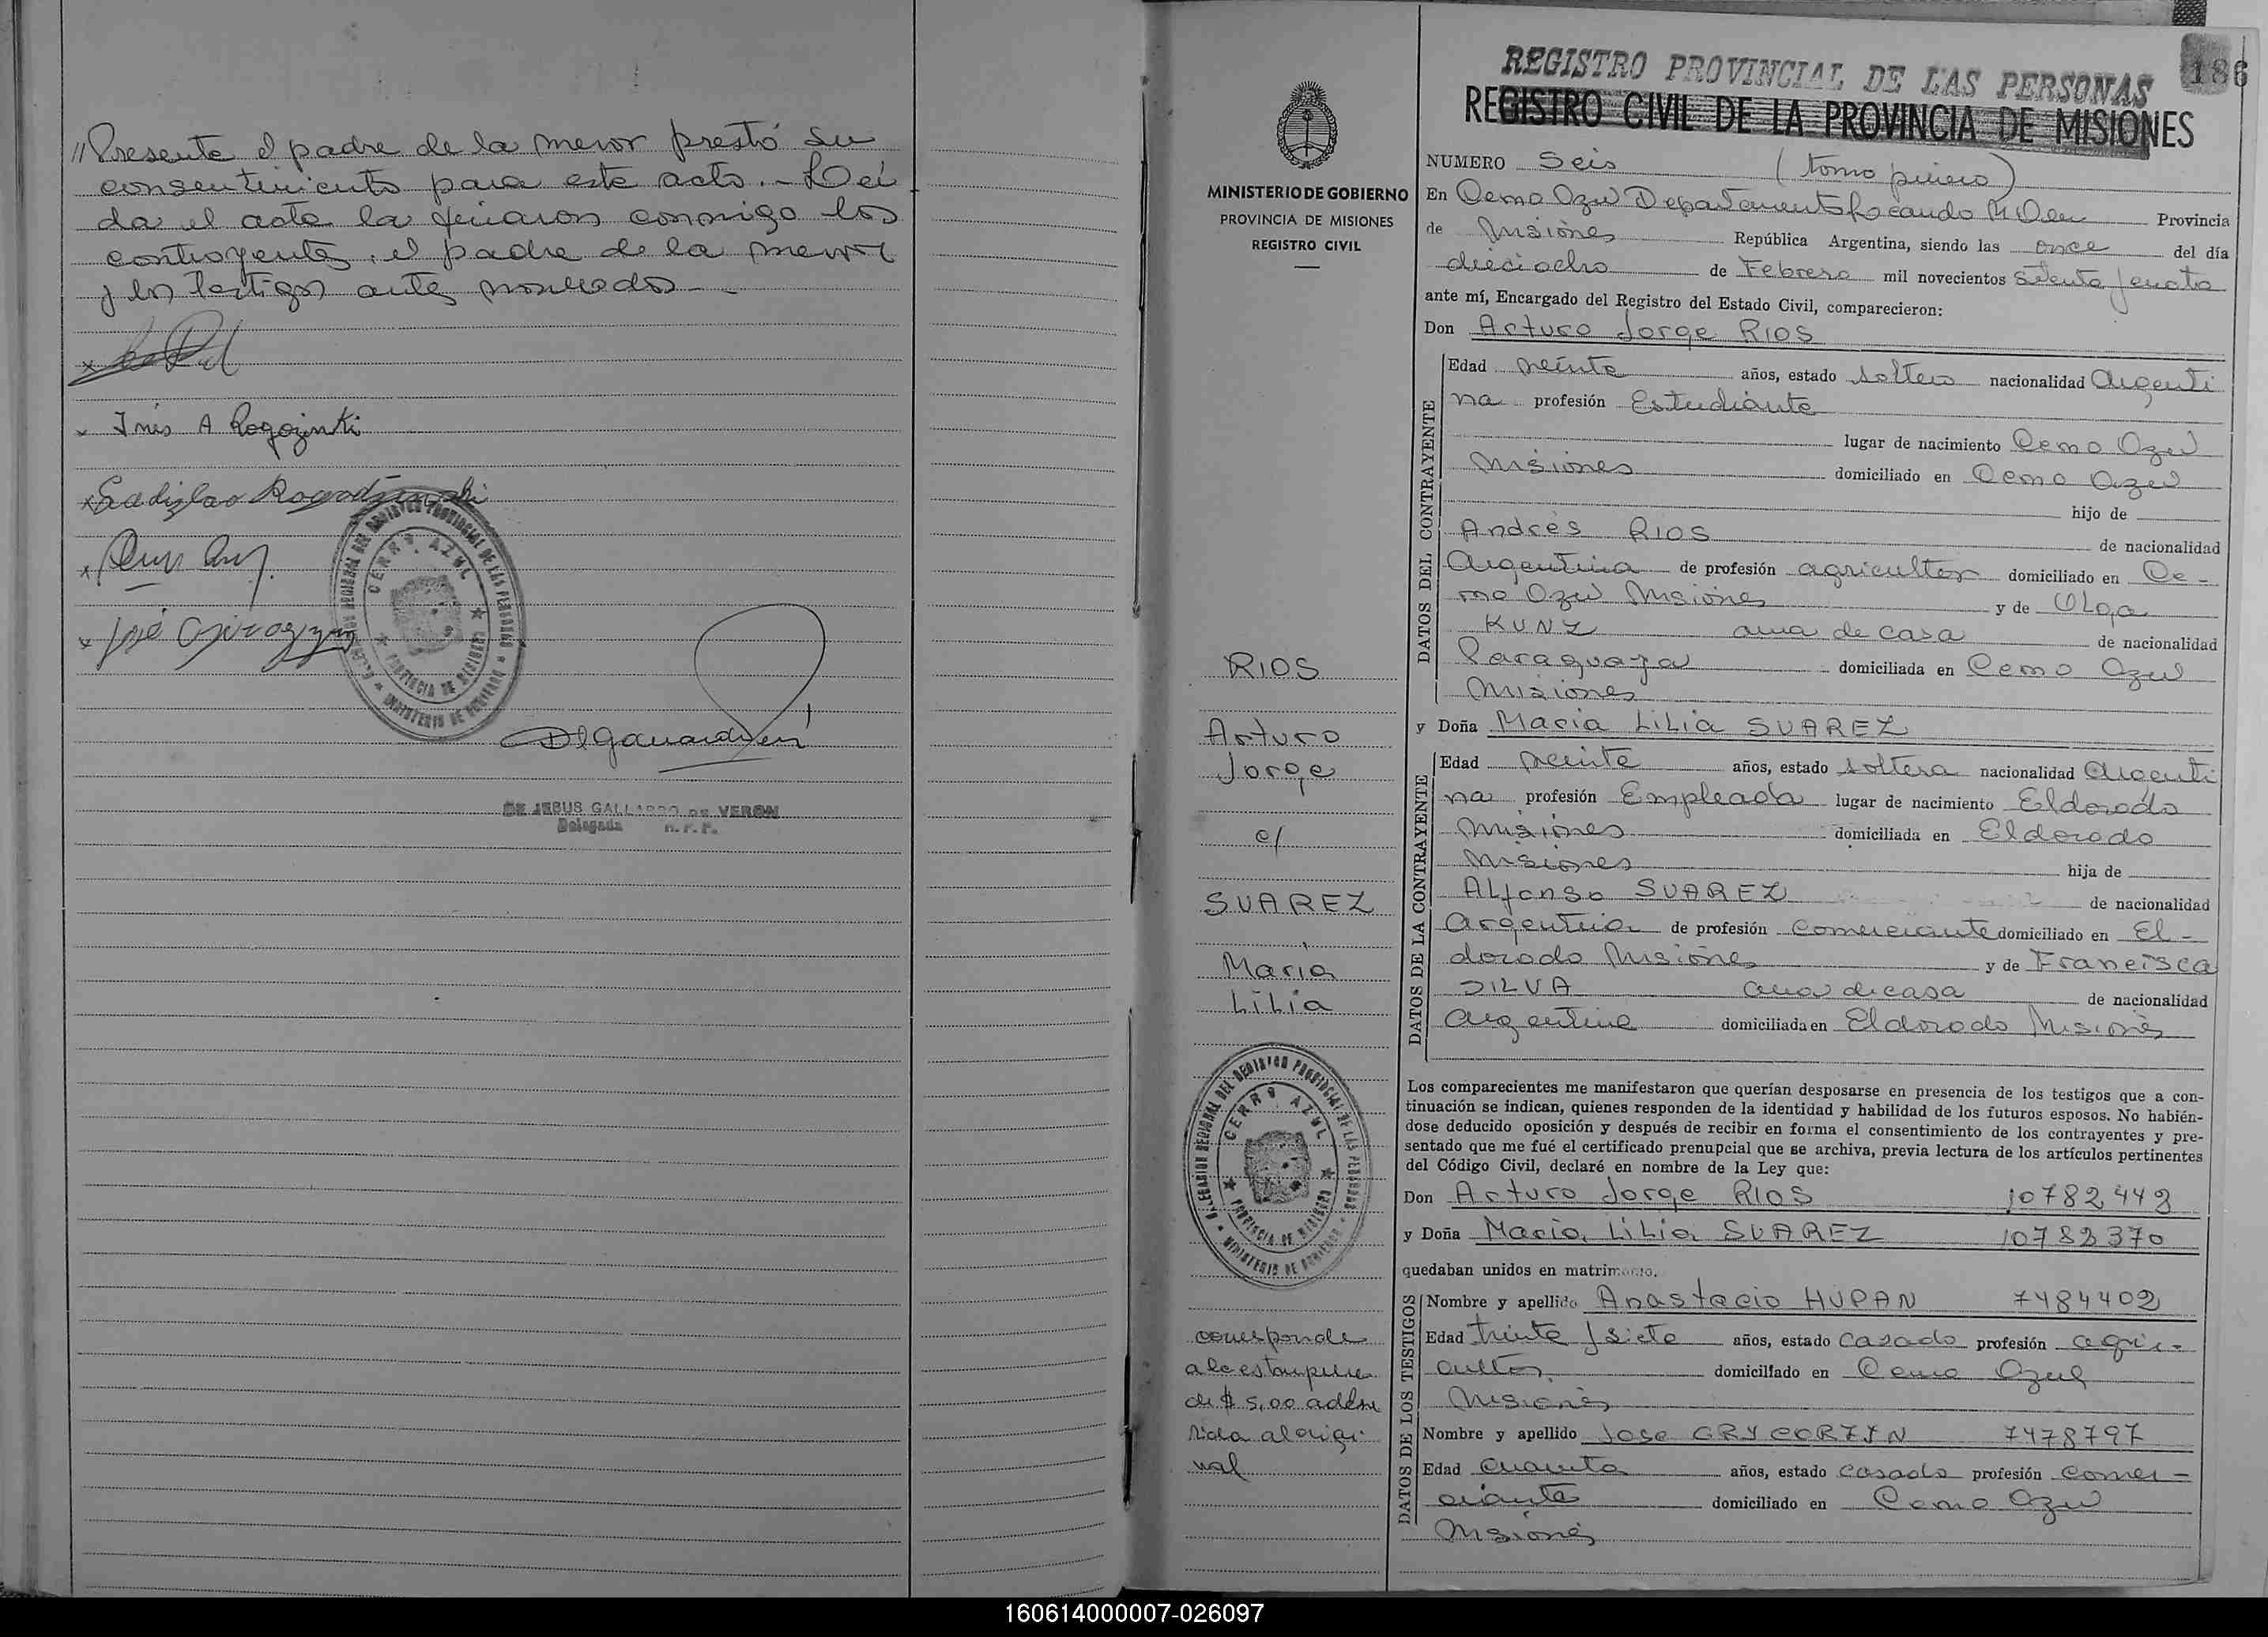 "Presente el padre de la menor prestó su
consentimiento para este acto.- Leí
da el acta la firmaron conmigo los
contrayentes, el padre de la menor
y los testigos antes nombrados -
x
x Inés A Rogozinki
x Ladislao Rogodzinski
x
x José
DE JESUS GALLARDO DE VERON
Delegada R.P.P.
DELEGACION REGIONAL DEL REGISTRO PROVINCIAL DE LAS PERSONAS
CERRO AZUL
PROVINCIA DE MISIONES
MINISTERIO DE GOBIERNO
186
REGISTRO PROVINCIAL DE LAS PERSONAS
REGISTRO CIVIL DE LA PROVINCIA DE MISIONES
MINISTERIO DE GOBIERNO
PROVINCIA DE MISIONES
REGISTRO CIVIL
RIOS
Arturo
Jorge
c/
SUAREZ
Maria
Lilia
DELEGACION REGIONAL DEL REGISTRO PROVINCIAL DE LAS PERSONAS
CERRO AZUL
PROVINCIA DE MISIONES
MINISTERIO DE GOBIERNO
corresponde
a la estampilla
de $ 5,00 adhe
rida al origi
nal
NUMERO Seis (tomo primero)
En Cerro Azul Departamento Leandro N Alem Provincia
de Misiones República Argentina, siendo las once del día
dieciocho de Febrero mil novecientos setenta y cuatro
ante mí, Encargado del Registro del Estado Civil, comparecieron:
Don Arturo Jorge RIOS
DATOS DEL CONTRAYENTE
Edad veinte años, estado soltero nacionalidad Argenti
na profesión Estudiante
lugar de nacimiento Cerro Azul
Misiones domiciliado en Cerro Azul
hijo de
Andrés RIOS de nacionalidad
Argentina de profesión agricultor domiciliado en Ce-
rro Azul Misiones y de Olga
KUNZ ama de casa de nacionalidad
Paraguaya domiciliada en Cerro Azul
Misiones
y Doña Maria Lilia SUAREZ
DATOS DE LA CONTRAYENTE
Edad veinte años, estado soltera nacionalidad Argenti
na profesión Empleada lugar de nacimiento Eldorado
Misiones domiciliada en Eldorado
Misiones hija de
Alfonso SUAREZ de nacionalidad
Argentina de profesión comerciante domiciliado en El-
dorado Misiones y de Francisca
SILVA ama de casa de nacionalidad
Argentina domiciliada en Eldorado Misiones
Los comparecientes me manifestaron que querían desposarse en presencia de los testigos que a con-
tinuación se indican, quienes responden de la identidad y habilidad de los futuros esposos. No habién-
dose deducido oposición y después de recibir en forma el consentimiento de los contrayentes y pre-
sentado que me fué el certificado prenupcial que se archiva, previa lectura de los artículos pertinentes
del Código Civil, declaré en nombre de la Ley que:
Don Arturo Jorge RIOS 10782442
y Doña Maria Lilia SUAREZ 10782370
quedaban unidos en matrimonio.
DATOS DE LOS TESTIGOS
Nombre y apellido Anastacio HUPAN 7484402
Edad treinta y siete años, estado casado profesión agri-
cultor domiciliado en Cerro Azul
Misiones
Nombre y apellido Jose 7478797
Edad cuarenta años, estado casado profesión comer-
ciante domiciliado en Cerro Azul
Misiones
160614000007-026097